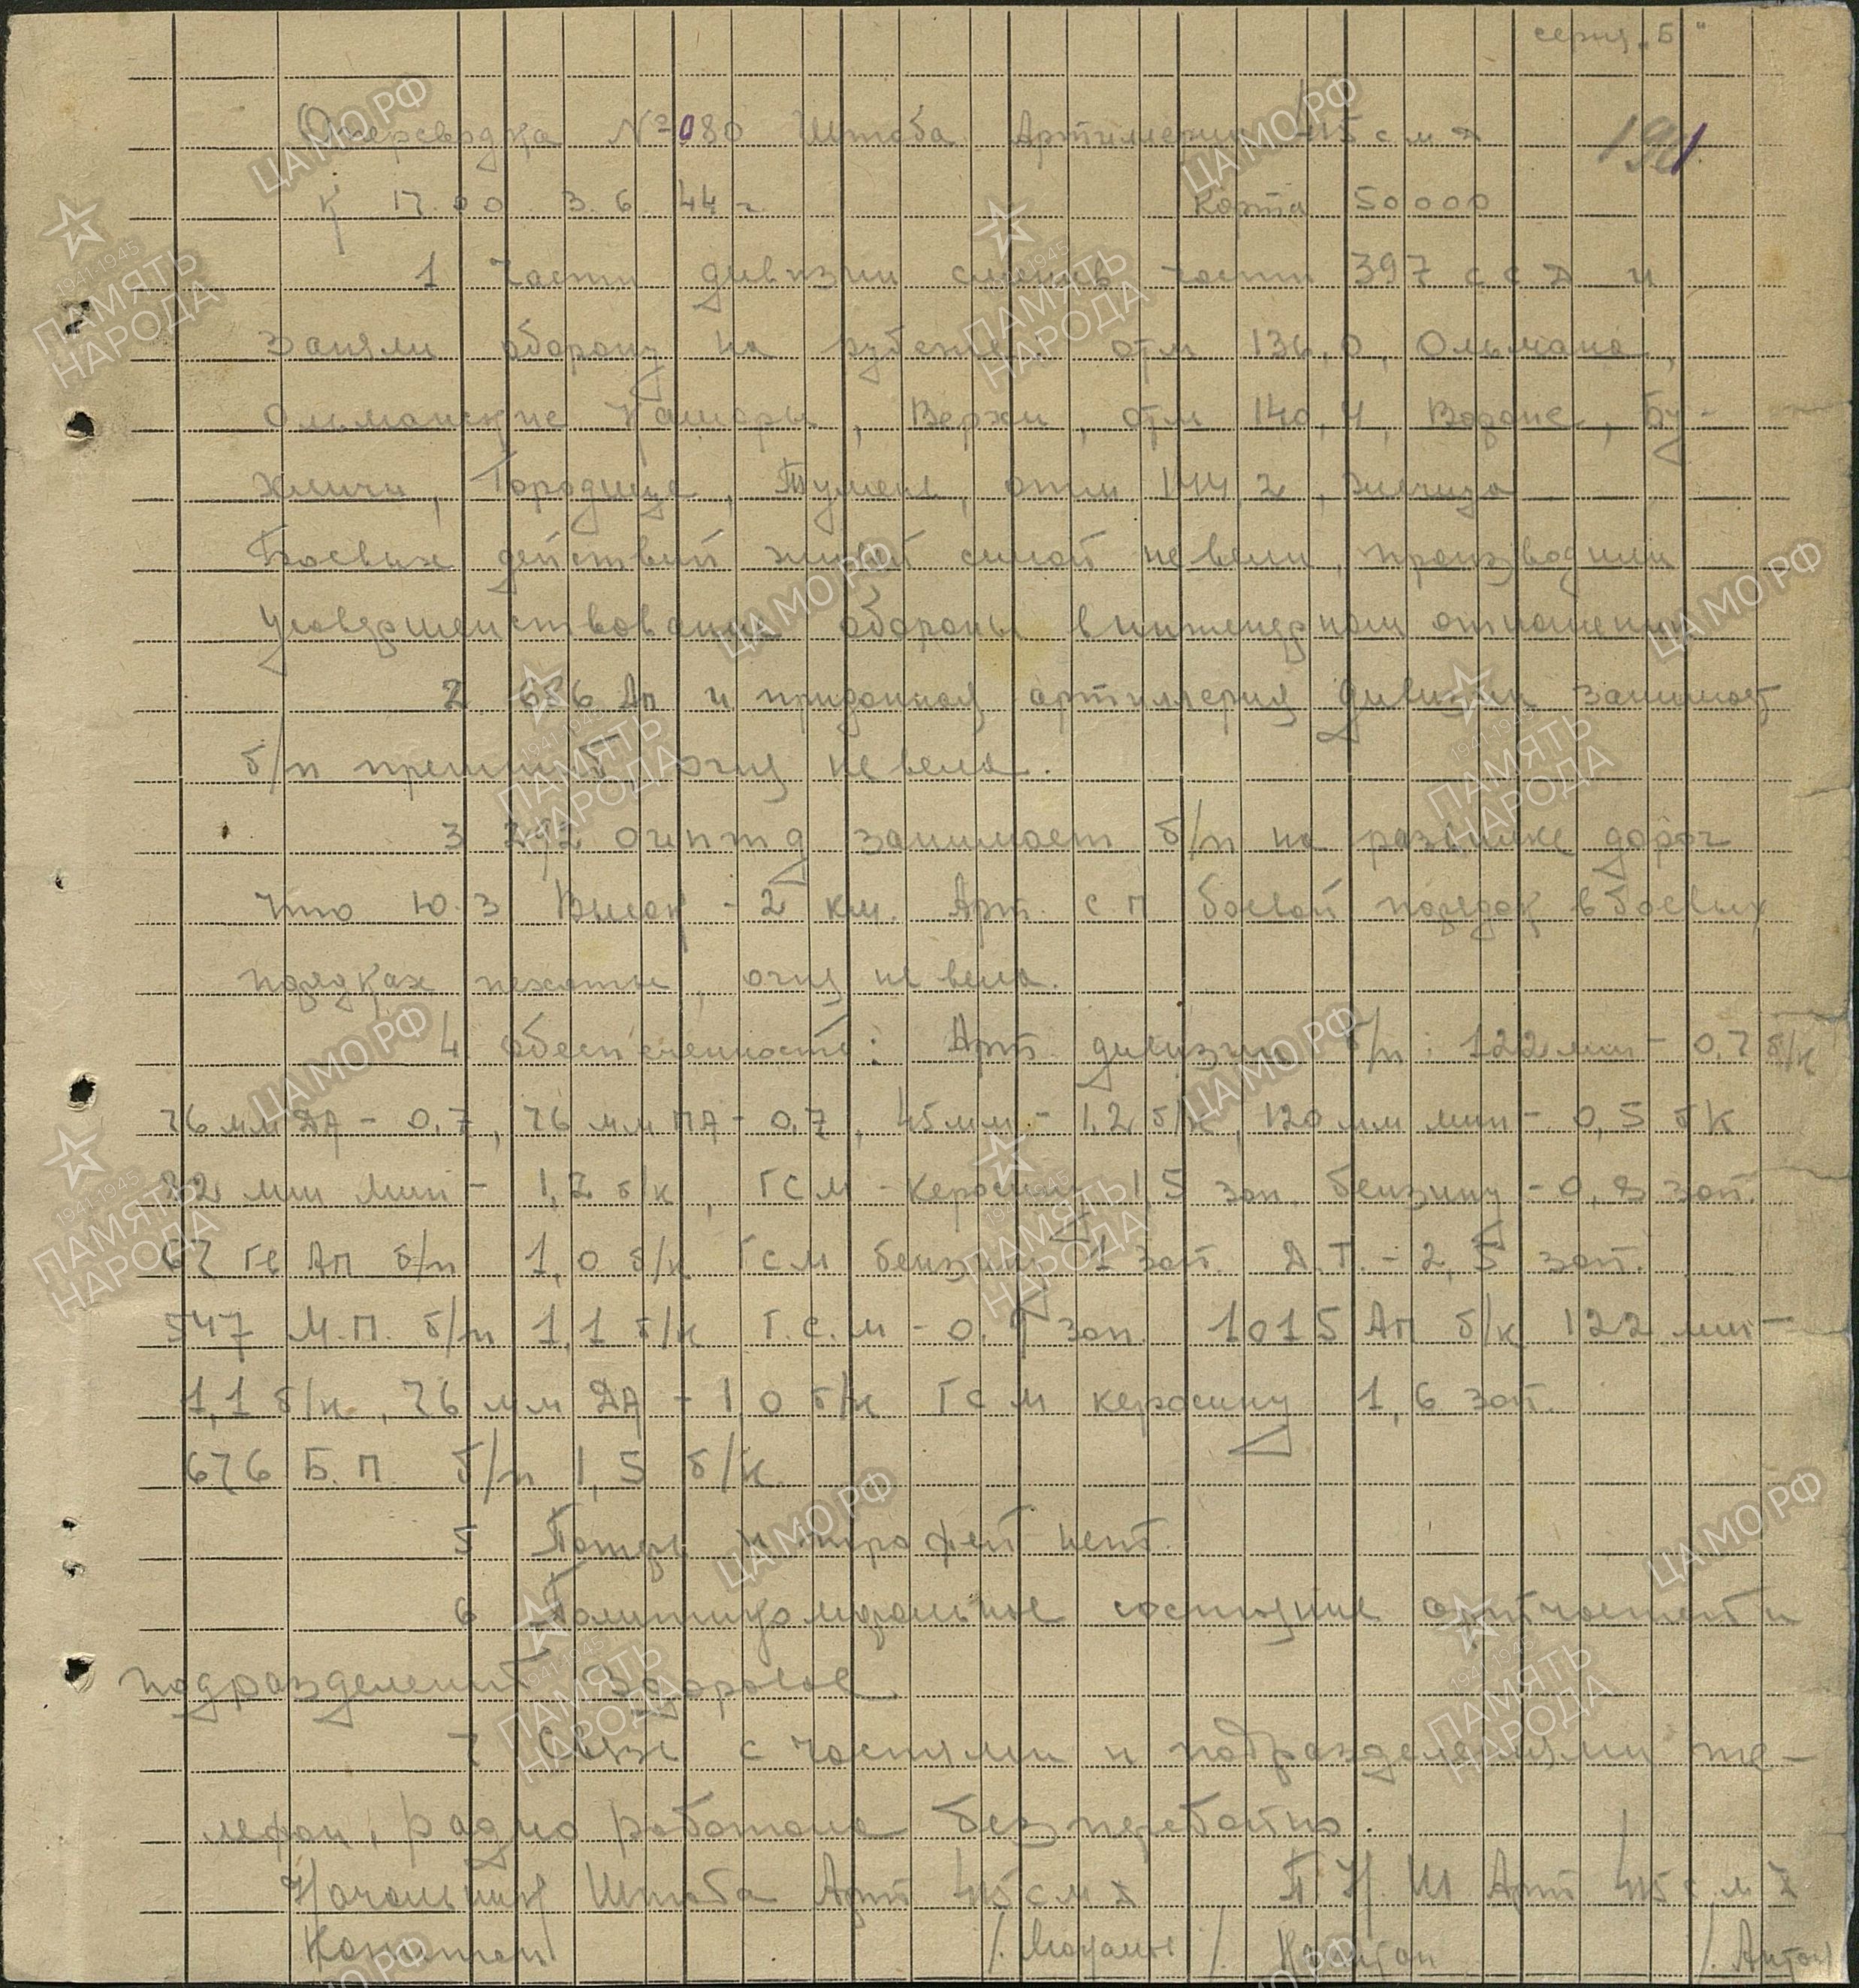 серия „Б"
Оперсводка № 080 Штаба Артиллерии 415 смд
191.
К 17.00 3.6.44 г. Карта 50000
1 Части дивизии сменив части 397 ссд и
заняли оборону на рубеже: отм 136,0, Ольмана,
Ольманские Кошары, Верхи, отм 140,4, Воронс, Бу-
хличи, Городище, Тумень, отм 144,2,
Боевых действий живой силой не вели, производили
усовершенствование обороны в инженерном отношении
2 686 Ап и приданная артиллерия дивизии занимает
б/п прежний огня не вела.
3 292 оиптд занимает б/п на развилке дорог
что ю.з Висок - 2 км. Арт. с.п боевой порядок в боевых
порядках пехоты, огня не вела.
4 обеспеченность: Арт. дивизии б/п: 122 мм - 0,7 б/к
76 мм ДА - 0,7, 76 мм ПА - 0,7, 45 мм - 1,2 б/к, 120 мм мин - 0,5 бк
82 мм мин - 1,2 б/к, ГСМ - керосину 1,5 зап. бензину - 0,8 зап.
67 гв Ап б/п 1,0 б/к ГСМ бензину 1 зап. Д.Т. - 2,5 зап.
547 М.П. б/п 1,1 б/к Г.С.М - 0,9 зап. 1015 Ап б/к 122 мм -
1,1 б/к, 76 мм ДА - 1,0 б/к ГСМ керосину 1,6 зап.
676 Б.П. б/п 1,5 б/к.
5 Потерь и трофей нет.
6 Политикоморальное состояние артчастей и
подразделений здоровое
7 Связь с частями и подразделениями те-
лефон, радио работала безперебойно.
Начальник Штаба Арт 415 смд П.Н.Ш Арт 415 с.м д
Капитан / / Капитан /
ЦАМО РФ
ПАМЯТЬ
НАРОДА
1941-1945